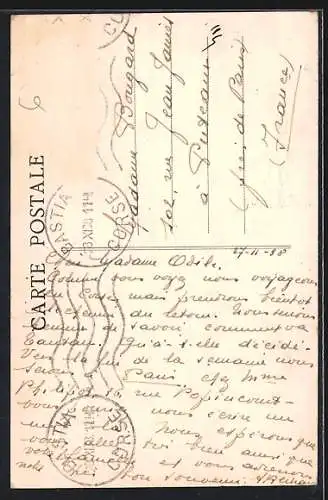 CARTE POSTALE
Madame Bougard
102, rue Jean Jaurès
à Puteaux
(près de Paris)
(France)
BASTIA
CORSE
27-11-38
Madame Odile,
Comme vous voyez nous voyageons
en Corse, mais prendrons bientôt
le chemin du retour. Nous serions
de savoir comment va
qu'a-t-elle décidé.
Vers la fin de la semaine nous
serons Paris chez Mme
rue Pépincourt
vous nous écrire un
mot nous espérons que
vous allez très bien ainsi que
votre et vous adressons
notre bon souvenir.
BASTIA
CORSE